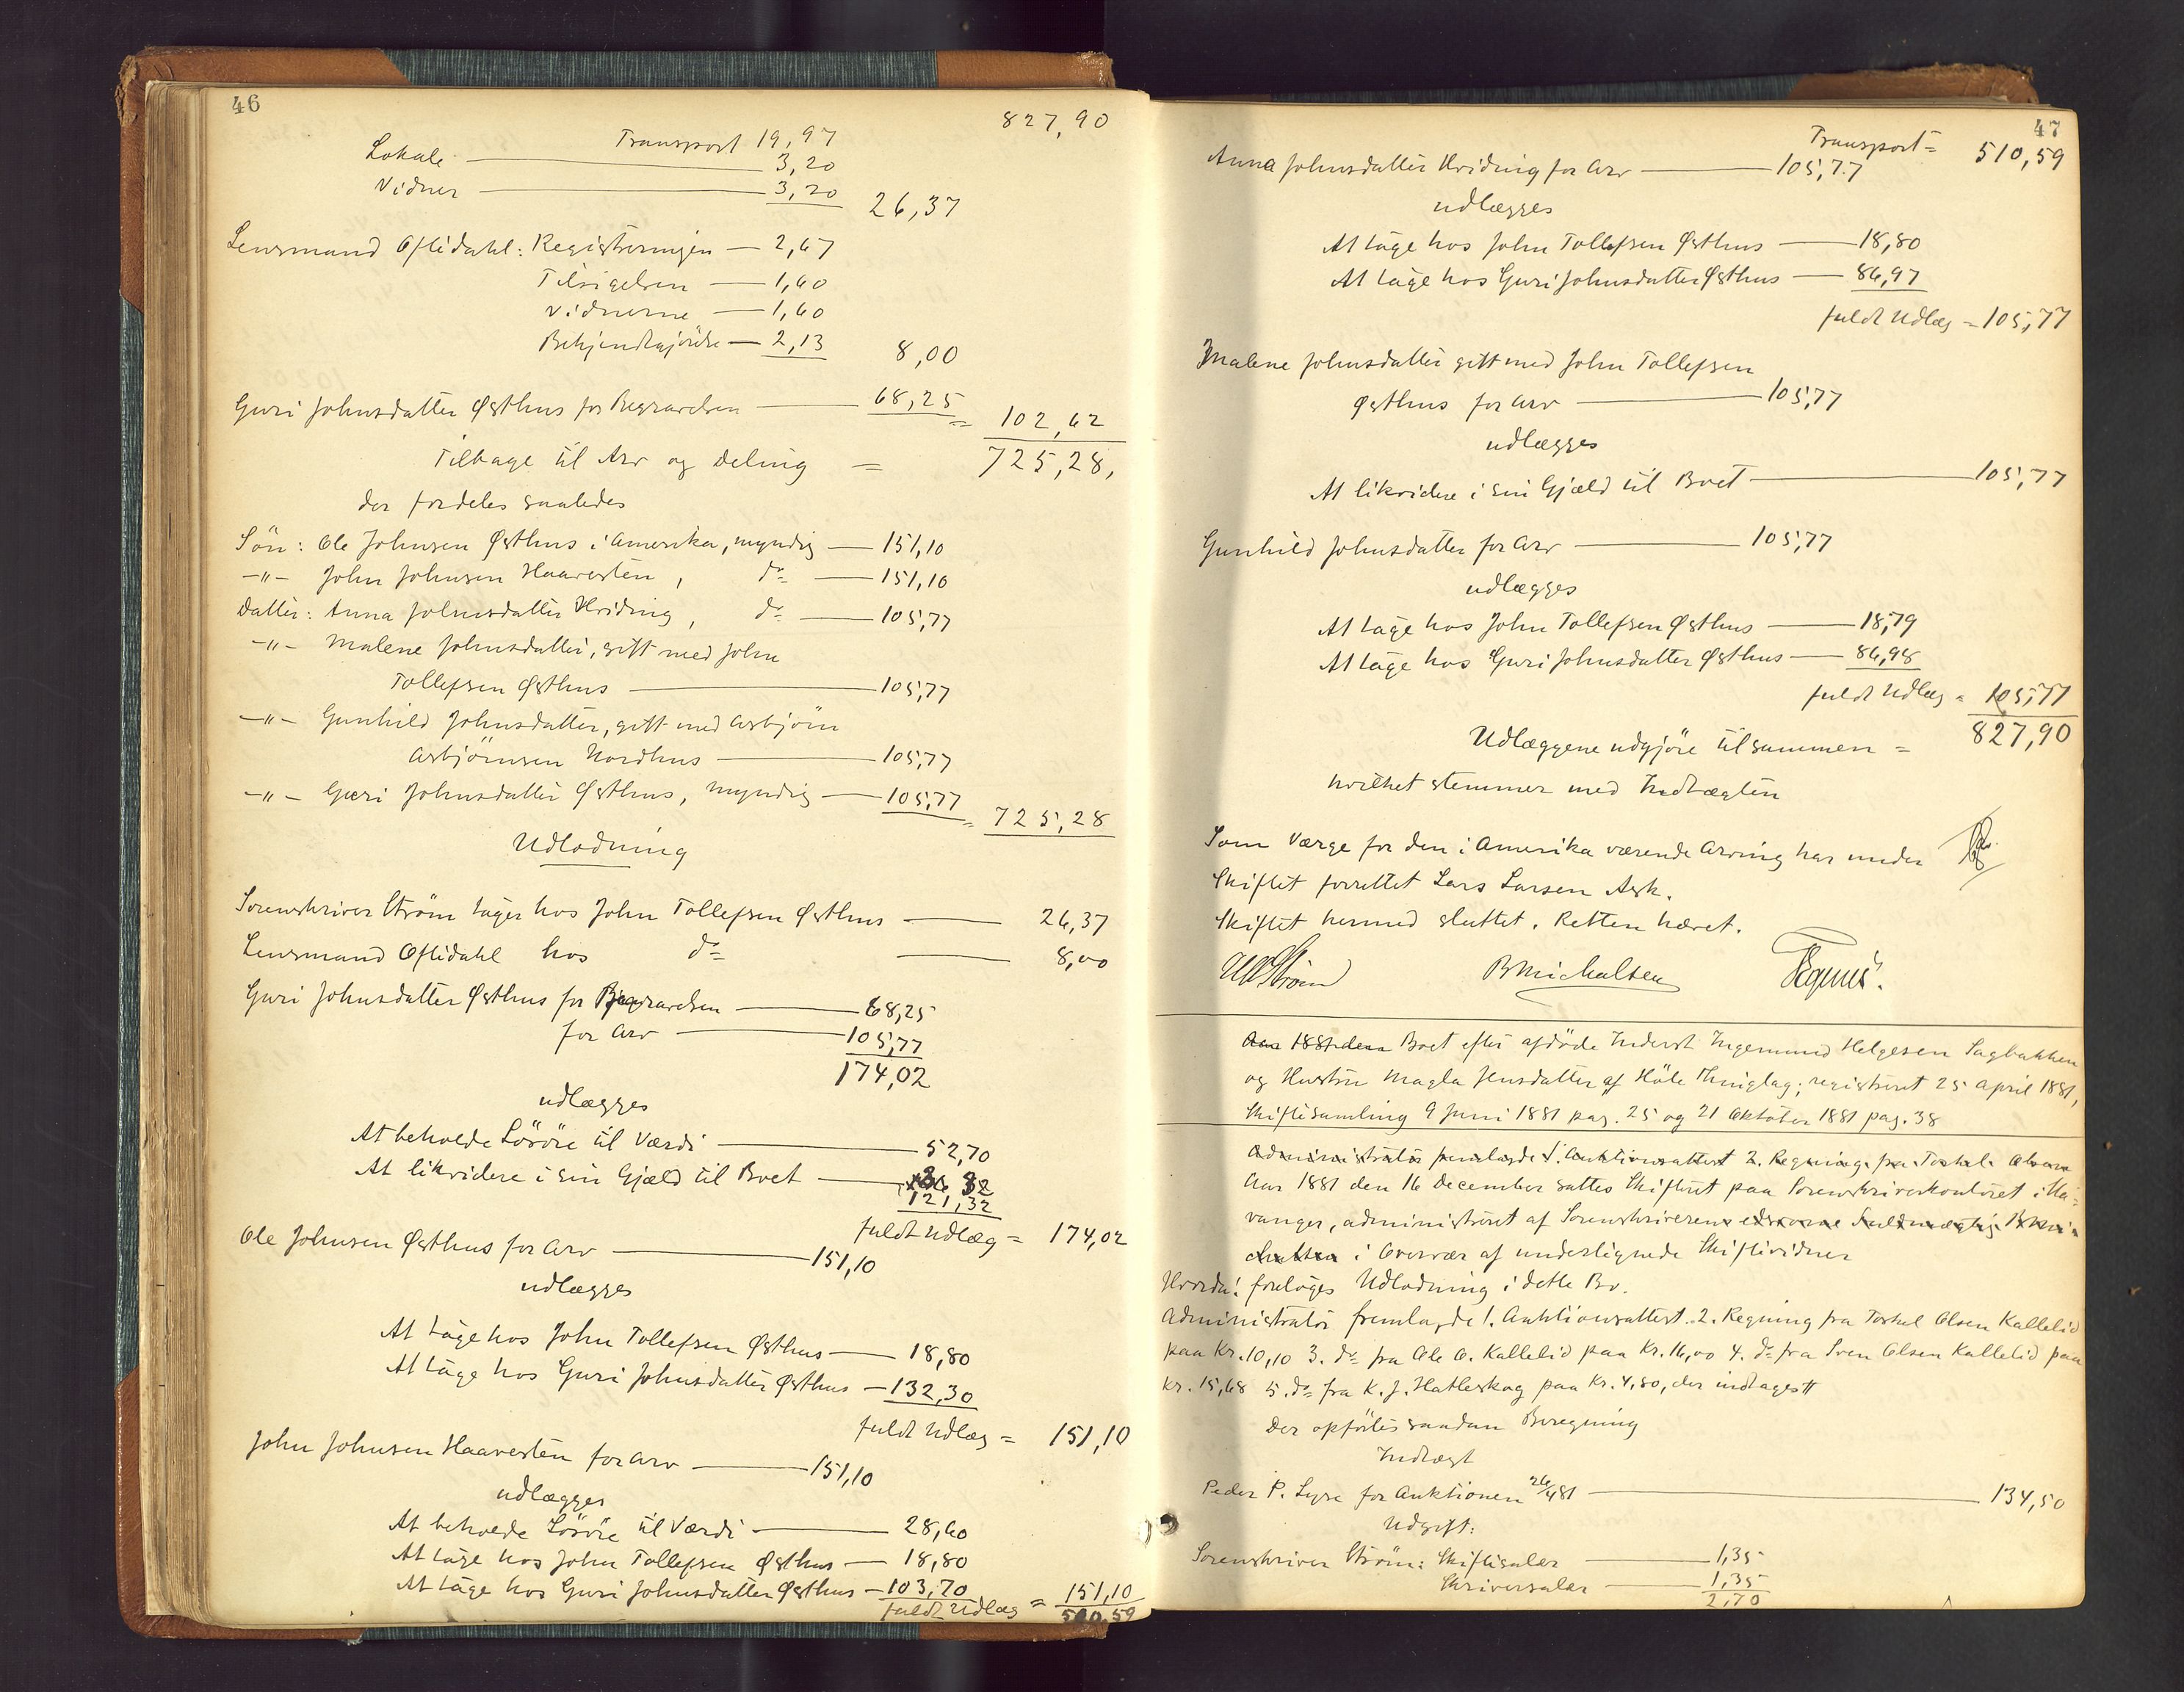 46
827,90
Transport 19,97
Lokale 3,20
Vidner 3,20 26,37
Lensmand Oftidahl: Registreringen 2,67
Tilsigelsen 1,60
Vidnerne 1,60
Bekjendtgjörelse 2,13 8,00
Guri Johnsdatter Østhus for Begravelsen 68,25 = 102,62
Tilbage til Arv og Deling = 725,28,
der fordeles saaledes
Sön: Ole Johnsen Østhus i Amerika, myndig 151,10
-"- John Johnsen Haavesten, do 151,10
Datter: Anna Johnsdatter Hviding, do 105,77
-"- Malene Johnsdatter, gift med John
Tollefsen Østhus 105,77
-"- Gunhild Johnsdatter, gift med Asbjörn
Asbjörnsen Nordhus 105,77
-"- Guri Johnsdatter Østhus, myndig 105,77 = 725,28
Udlodning
Sorenskriver Ström tager hos John Tollefsen Østhus 26,37
Lensmand Oftidahl hos do 8,00
Guri Johnsdatter Østhus for Begravelsen 68,25
for Arv 105,77
174,02
udlægges
At beholde Lösöre til Værdi 52,70
At likvidere i sin Gjæld til Boet
121,32
fuldt Udlæg = 174,02
Ole Johnsen Østhus for Arv 151,10
udlægges
At tage hos John Tollefsen Østhus 18,80
At tage hos Guri Johnsdatter Østhus 132,30
fuldt Udlæg = 151,10
John Johnsen Haavesten for Arv 151,10
udlægges
At beholde Lösöre til Værdi 28,60
At tage hos John Tollefsen Østhus 18,80
At tage hos Guri Johnsdatter Østhus 103,70
fuldt Udlæg = 151,10
510,59
47
Transport = 510,59
Anna Johnsdatter Hviding for Arv 105,77
udlægges
At tage hos John Tollefsen Østhus 18,80
At tage hos Guri Johnsdatter Østhus 86,97
fuldt Udlæg = 105,77
Malene Johnsdatter gift med John Tollefsen
Østhus for Arv 105,77
udlægges
At likvidere i sin Gjæld til Boet 105,77
Gunhild Johnsdatter for Arv 105,77
udlægges
At tage hos John Tollefsen Østhus 18,79
At tage hos Guri Johnsdatter Østhus 86,98
fuldt Udlæg = 105,77
Udlæggene udgjöre tilsammen = 827,90
hvilket stemmer med Indtægten
Som Værge for den i Amerika værende Arving har under
Skiftet forrettet Lars Larsen Ask.
Skiftet hermed sluttet. Retten hævet.
Ström BMichalsen
Aar 1881 den Boet efter afdöde Inderst Ingemund Helgesen Sagbakken
og Hustru Magla Jensdatter af Höle Thinglag; registreret 25 April 1881,
Skiftesamling 9 Juni 1881 pag. 25 og 21 Oktober 1881 pag. 38
Administrator fremlagde 1. Auktionsattest 2. Regning fra Torkel Olsen
Aar 1881 den 16 December sattes Skifteret paa Sorenskriverkontoret i Sta-
vanger, administreret af Sorenskriverens edsvorne Fuldmægtig BMi-
chalsen i Overvær af undertegnede Skiftevidner
Hvorda: foretoges Udlodning i dette Bo.
Administrator fremlagde 1. Auktionsattest. 2. Regning fra Torkel Olsen Kallelid
paa Kr. 10,10 3. do fra Ole O. Kallelid paa Kr. 16,00 4. do fra Sven Olsen Kallelid paa
Kr. 15,68 5. do fra K. J. Hatleskog paa Kr. 4,80, der indtages
Der opförtes saadan Beregning
Indtægt
Peder P. Lyse for Auktionen 26/4 81 134,50
Udgift:
Sorenskriver Ström: Skiftesalær 1,35
Skriversalær 1,35
2,70